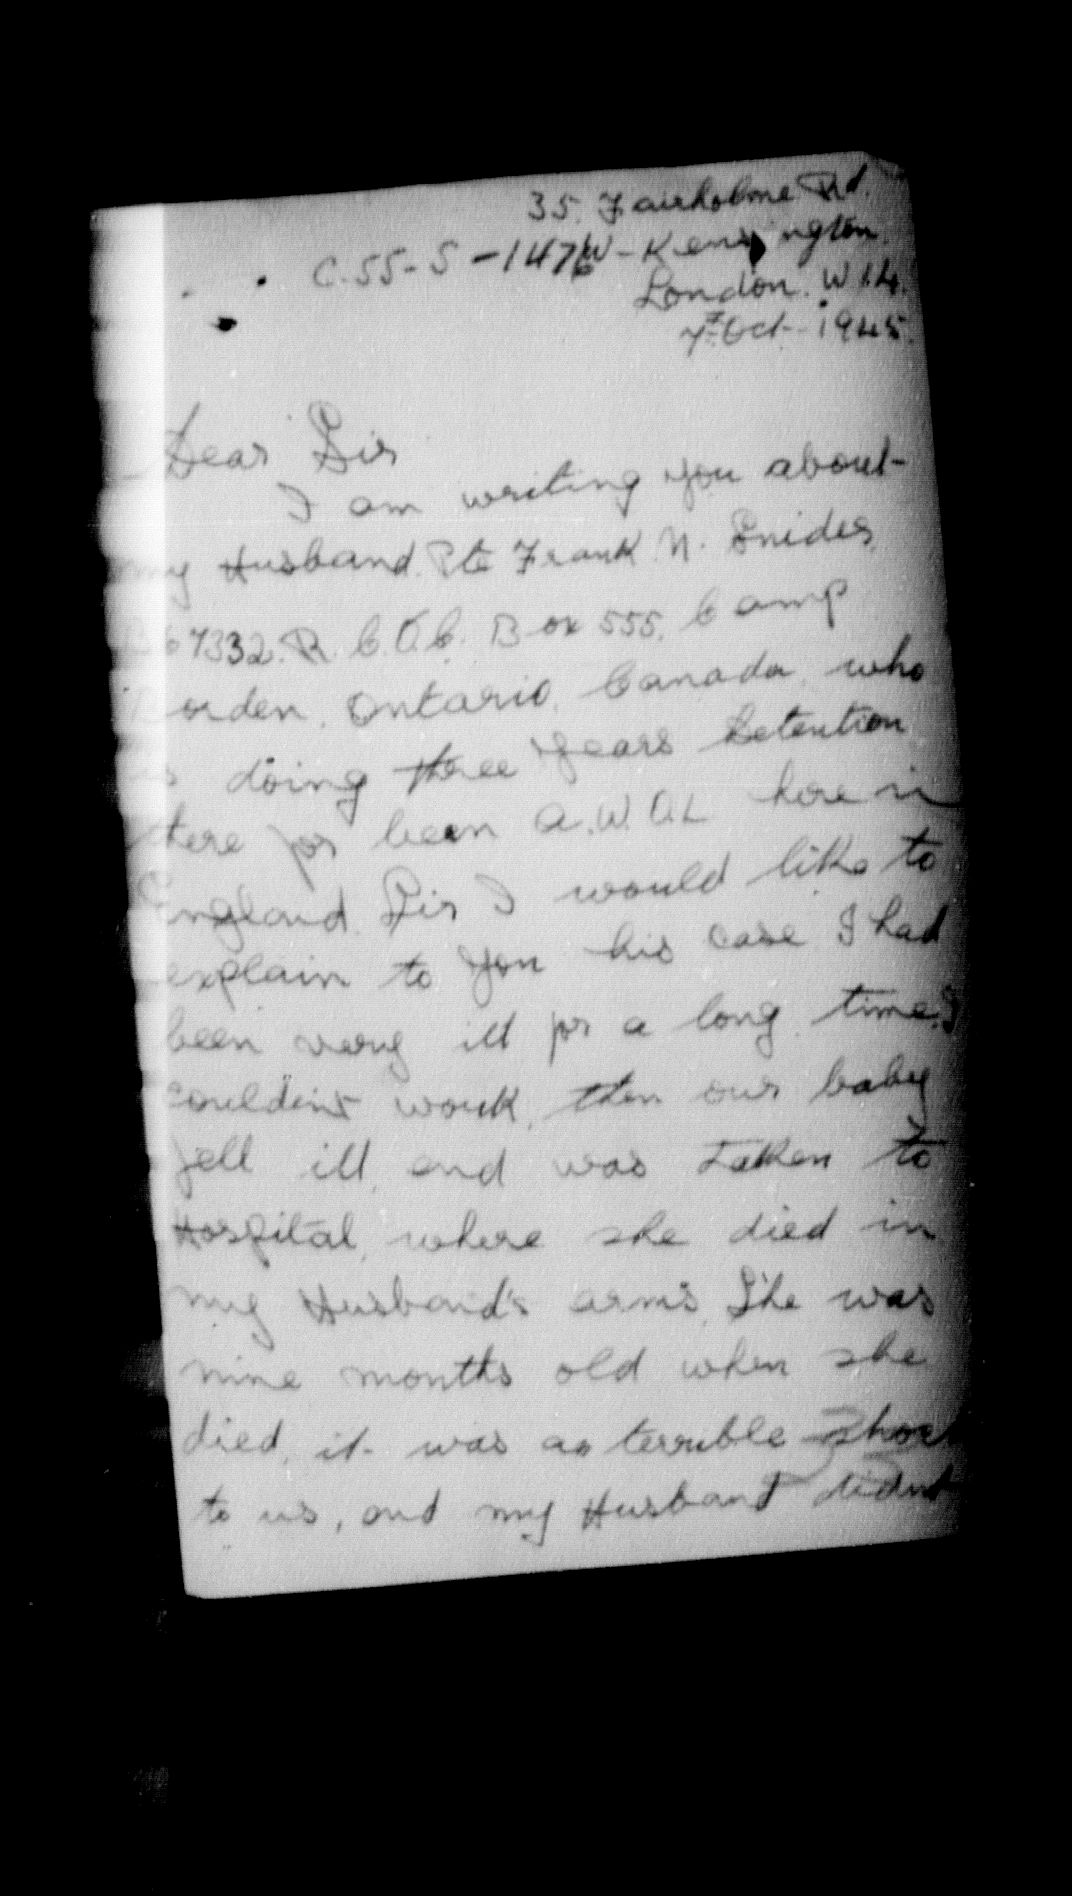 35. Fairholme Rd.
C.55-S-1476 W-Kensington.
London. W14.
7th Oct-1945.
Dear Sir
I am writing you about
my Husband. Pte Frank. N. Snider
67332. R.C.O.C. Box 555. Camp
Borden, Ontario, Canada, who
is doing three years detention
there for been A.W.O.L here in
England. Sir I would like to
explain to you his case I had
been very ill for a long time. I
couldent work, then our baby
fell ill, and was taken to
Hospital, where she died in
my Husband's arms, She was
nine months old when she
died, it was as terrible shock
to us, and my Husband didnt